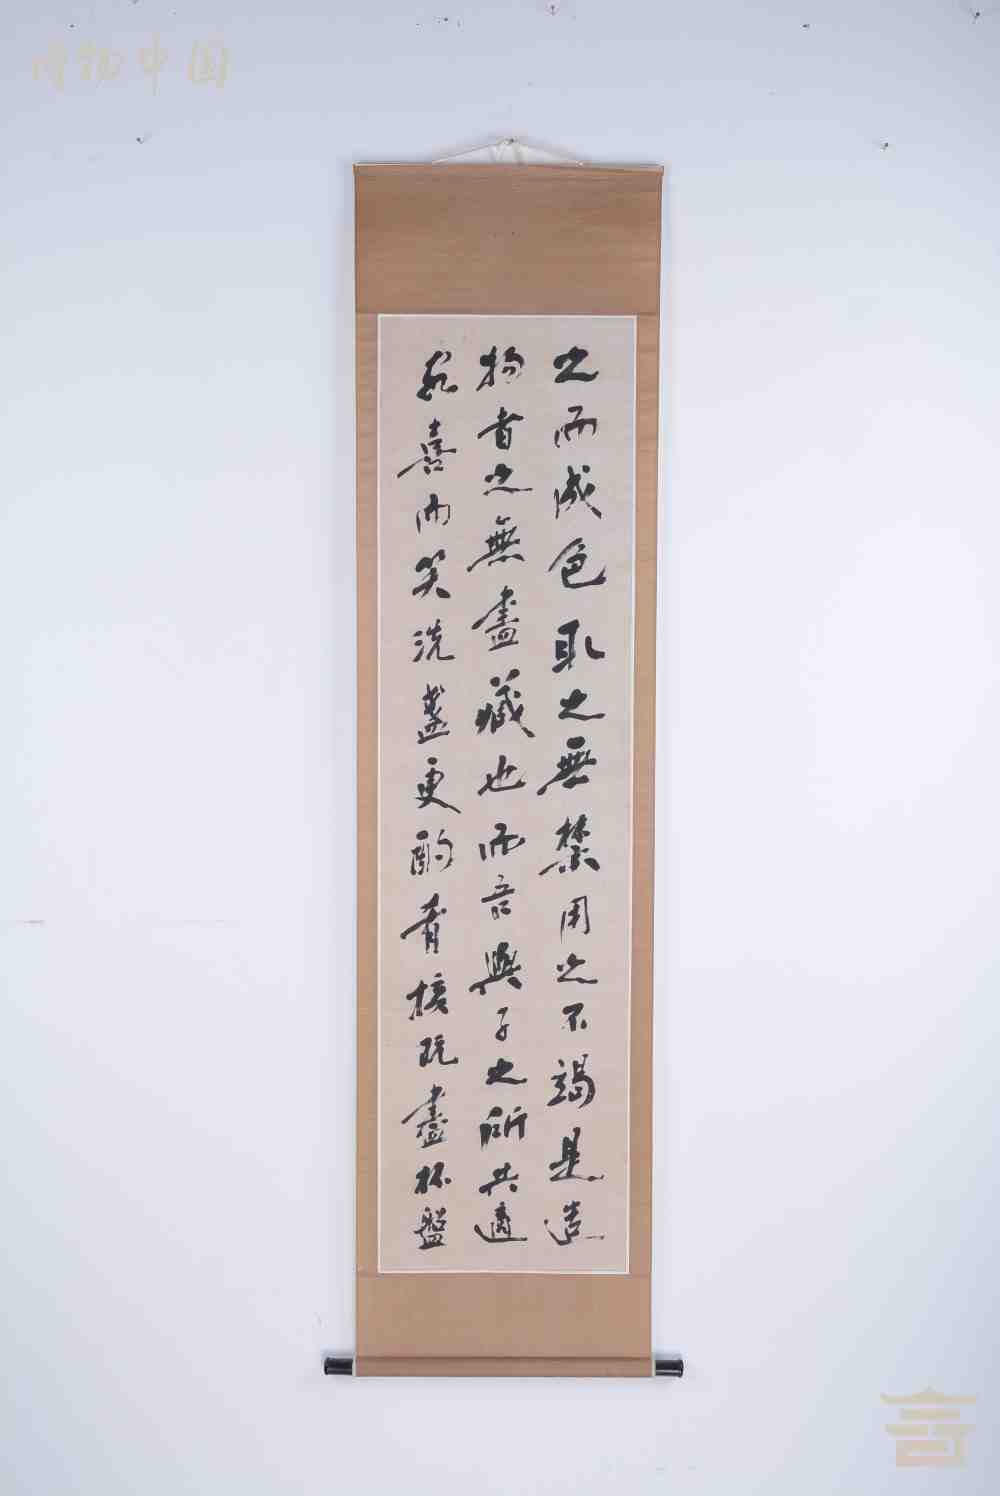 博物中国
之而成色取之無禁用之不竭是造
物者之無盡藏也而吾與子之所共適
客喜而笑洗盞更酌肴核既盡杯盤